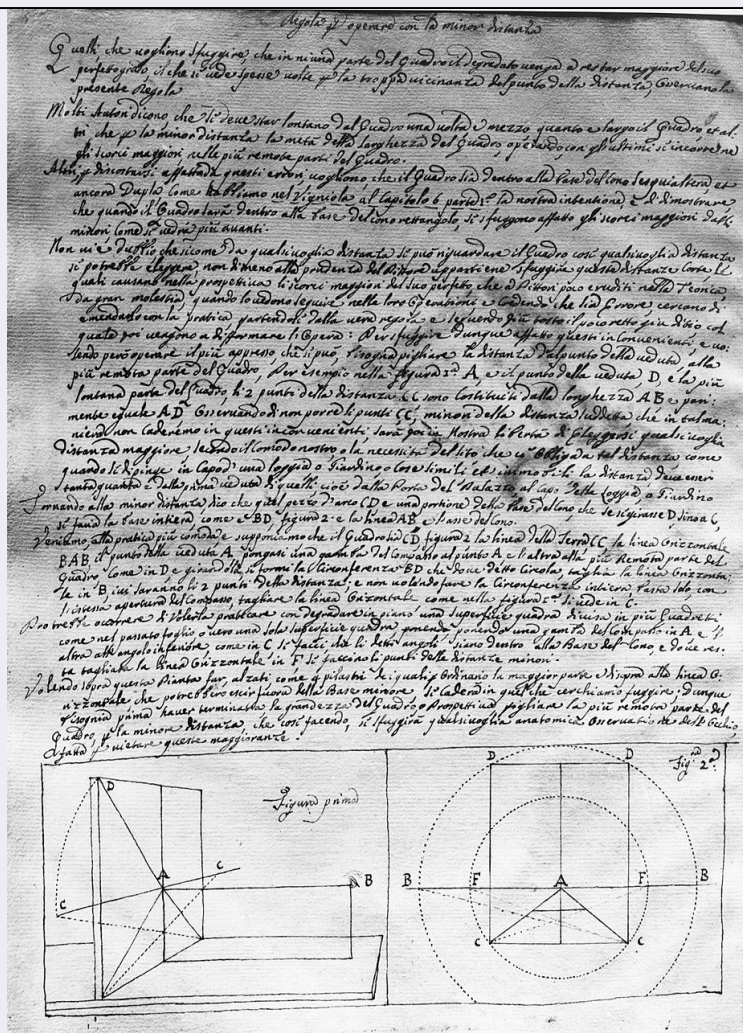 Regola p operare con la minor distanza
Quelli che uogliono sfuggire, che in niuna parte del Quadro il degradato uenga a restar maggiore del suo
perfetto, il che si uede spesse uolte p la troppa uicinanza del punto della distanza, oseruano la
presente Regola
Molti Autori dicono, che si deue star lontano dal Quadro una uolta e mezzo quanto e largo il Quadro et al-
tri che p la minor distanza la metà della larghezza del Quadro, operando con gli ultimi si incorre ne
gli scorci maggiori nelle più remote parti del Quadro.
Altri p discostarsi affatto da questi errori uogliono che il Quadro sia dentro alla base del cono sesquialtera, et
ancora Dupla come habbiamo nel Vigniola al Capitolo 6 parte 1ª la nostra intentione, è di dimostrare
che quando il Quadro sarà dentro alla base del cono rettangolo, si sfuggono affatto gli scorci maggiori dalli
minori come si uedrà più auanti.
Non ui è dubbio che sicome da qualsiuoglia distanza si può riguardare il Quadro così qualsiuoglia distanza
si potrebbe eleggere, non dimeno alla prudenza del Pittore appartiene sfuggire queste distanze corte le
quali causano nella prospettiua li scorci maggiori del suo perfetto, che a Pittori poco eruditi nella Teorica,
da gran molestia, quando lo uedono seguire, nelle loro Operationi e Credendo che sia Errore, cercono di
emendarlo con la pratica partendosi dalla uera regola e seguendo più tosto il poco retto giuditio col
quale poi uengono a difformare li Opera: Per sfuggire dunque affatto questi inconuenienti e uo:
lendo però operare il più appresso che si può, bisogna pigliare la distanza dal punto della ueduta, alla
più remota parte del Quadro, Per esempio nella figura 1ª A, e il punto della ueduta, D, e la più
lontana parte del Quadro, li 2 punti della distanza CC sono Costituiti dalla longhezza AB e pari-
mente eguale AD Oseruando di non porre li punti CC, minori della distanza suddetta che in tal ma:
niera non caderemo in questi inconuenienti, sarà poi in Nostra libertà di Eleggersi qualsiuoglia
distanza maggiore secondo il Comodo nostro o la necessità del sito che ci obliga a tal distanza come
quando si dipinge in Capo d'una loggia o Giardino o Cose simili et immobili la distanza deue esser
tanta quanta è dalla prima ueduta di quelli cioè dalla Porta del Palazzo al capo della Loggia, o Giardino
Tornando alla minor distanza dico che quel pezzo d'arco CD e una portione della base del cono, che se si girasse D sino a C,
si faria la base intiera come e BD, figura 2ª e la linea AB e l'asse del cono.
Veniamo alla pratica più comoda e supponiamo che il Quadro sia CD figura 2 la linea della Terra CC, la linea Orizzontale
BAB il punto della ueduta A pongasi una gamba del Compasso al punto A e l'altra alla più Remota parte del
Quadro Come in D e girandola si formi la Circonferenza BD che doue detto Circolo taglia la linea Orizzonta:
le in B, iui saranno li 2 punti della distanza; e non uolendo fare la Circonferenza intiera basta solo con
l'istessa apertura del Compasso, tagliare la linea Orizontale come nella figura 1ª si uede in C.
Potrebbe occorrere di Volersi praticare con degradare in piano una superficie quadra diuisa in più Quadretti
come nel passato foglio o uero una sola superficie quadra ponendo una gamba del Compasso in A e l'
altra all'angolo inferiore come in C si facci che li detti angoli siano dentro alla Base del Cono, e doue res-
ta tagliata la linea Orizzontale in F si faccino li punti delle distanze minori.
Volendo sopra questa Pianta far, alzati come q pilastri de i quali ordinano la maggior parte e di sopra alla linea O-
rizzontale che potrebbero escir fuora della Base minore, si caderà in quel che cerchiamo fuggire: dunque
bisogna prima hauer terminata la grandezza del Quadro o Prospettiua pigliare la più remota parte del
Quadro p la minore distanza, che così facendo, si sfuggirà qualsiuoglia anatomica Oseruatione dell'Occhio,
fatta p uietare queste maggioranze.
Figura prima
Figra 2ª
D
A
C
C
B
D
D
B
F
A
F
B
C
C